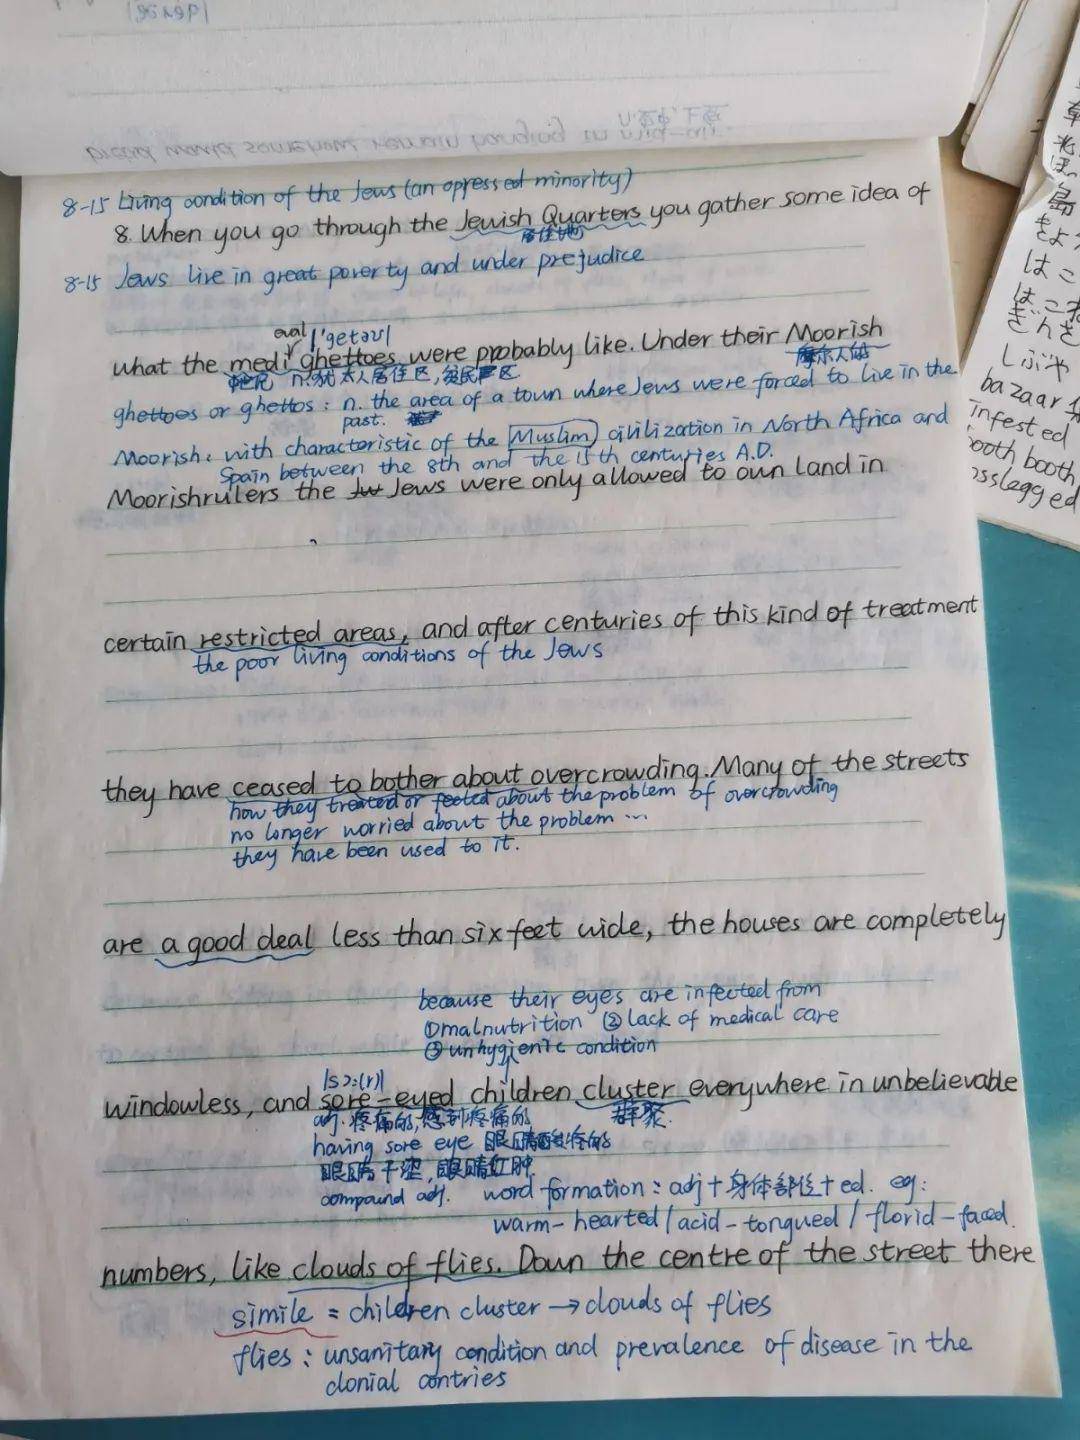 8-15 Living condition of the Jews (an opressed minority)
8. When you go through the Jewish Quarters you gather some idea of
居住地
8-15 Jews live in great poverty and under prejudice
eval |'getəʊ|
what the medi ghettoes were probably like. Under their Moorish
n.犹太人居住区,贫民区 摩尔人的
ghettoes or ghettos: n. the area of a town where Jews were forced to live in the
past.
Moorish: with characteristic of the Muslim civilization in North Africa and
Spain between the 8th and the 15th centuries A.D.
Moorishrulers the Jews were only allowed to own land in
certain restricted areas, and after centuries of this kind of treatment
the poor living conditions of the Jews
they have ceased to bother about overcrowding. Many of the streets
how they treated or feeled about the problem of overcrowding
no longer worried about the problem ...
they have been used to it.
are a good deal less than six feet wide, the houses are completely
because their eyes are infected from
①malnutrition ②lack of medical care
③unhygienic condition
|sɔ:(r)|
windowless, and sore-eyed children cluster everywhere in unbelievable
adj.疼痛的,感到疼痛的 群聚.
having sore eye 眼睛酸疼的
眼睛干涩,眼睛红肿.
compound adj. word formation: adj+身体部位+ed. eg:
warm-hearted/acid-tongued/florid-faced.
numbers, like clouds of flies. Down the centre of the street there
simile = children cluster → clouds of flies
flies: unsanitary condition and prevalence of disease in the
clonial contries
島
きよ
はこ
ばこね
ぎんざ
しぶや
bazaar
infested
booth booth
osslegged